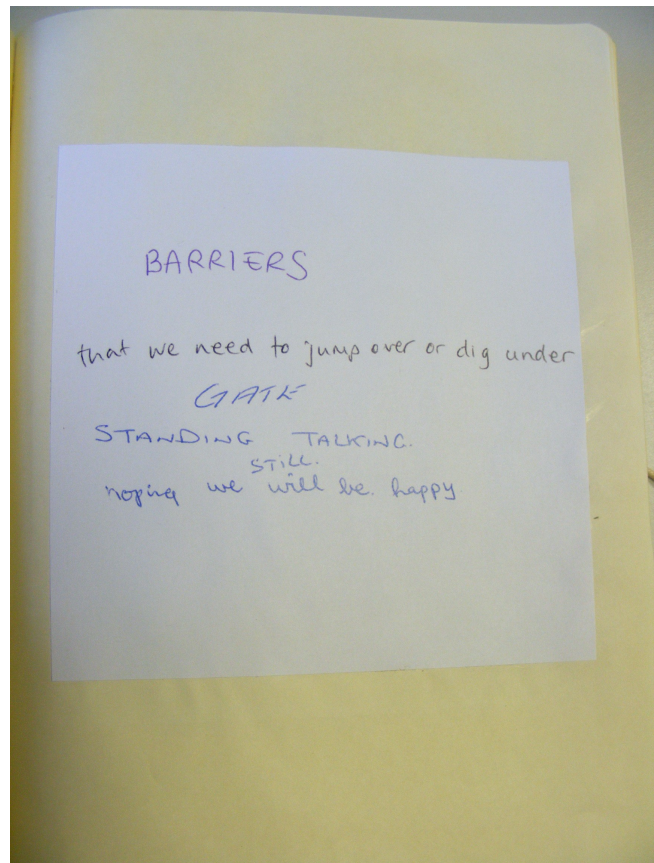 BARRIERS
that we need to jump over or dig under
GATE
STANDING TALKING.
STILL.
hoping we will be happy